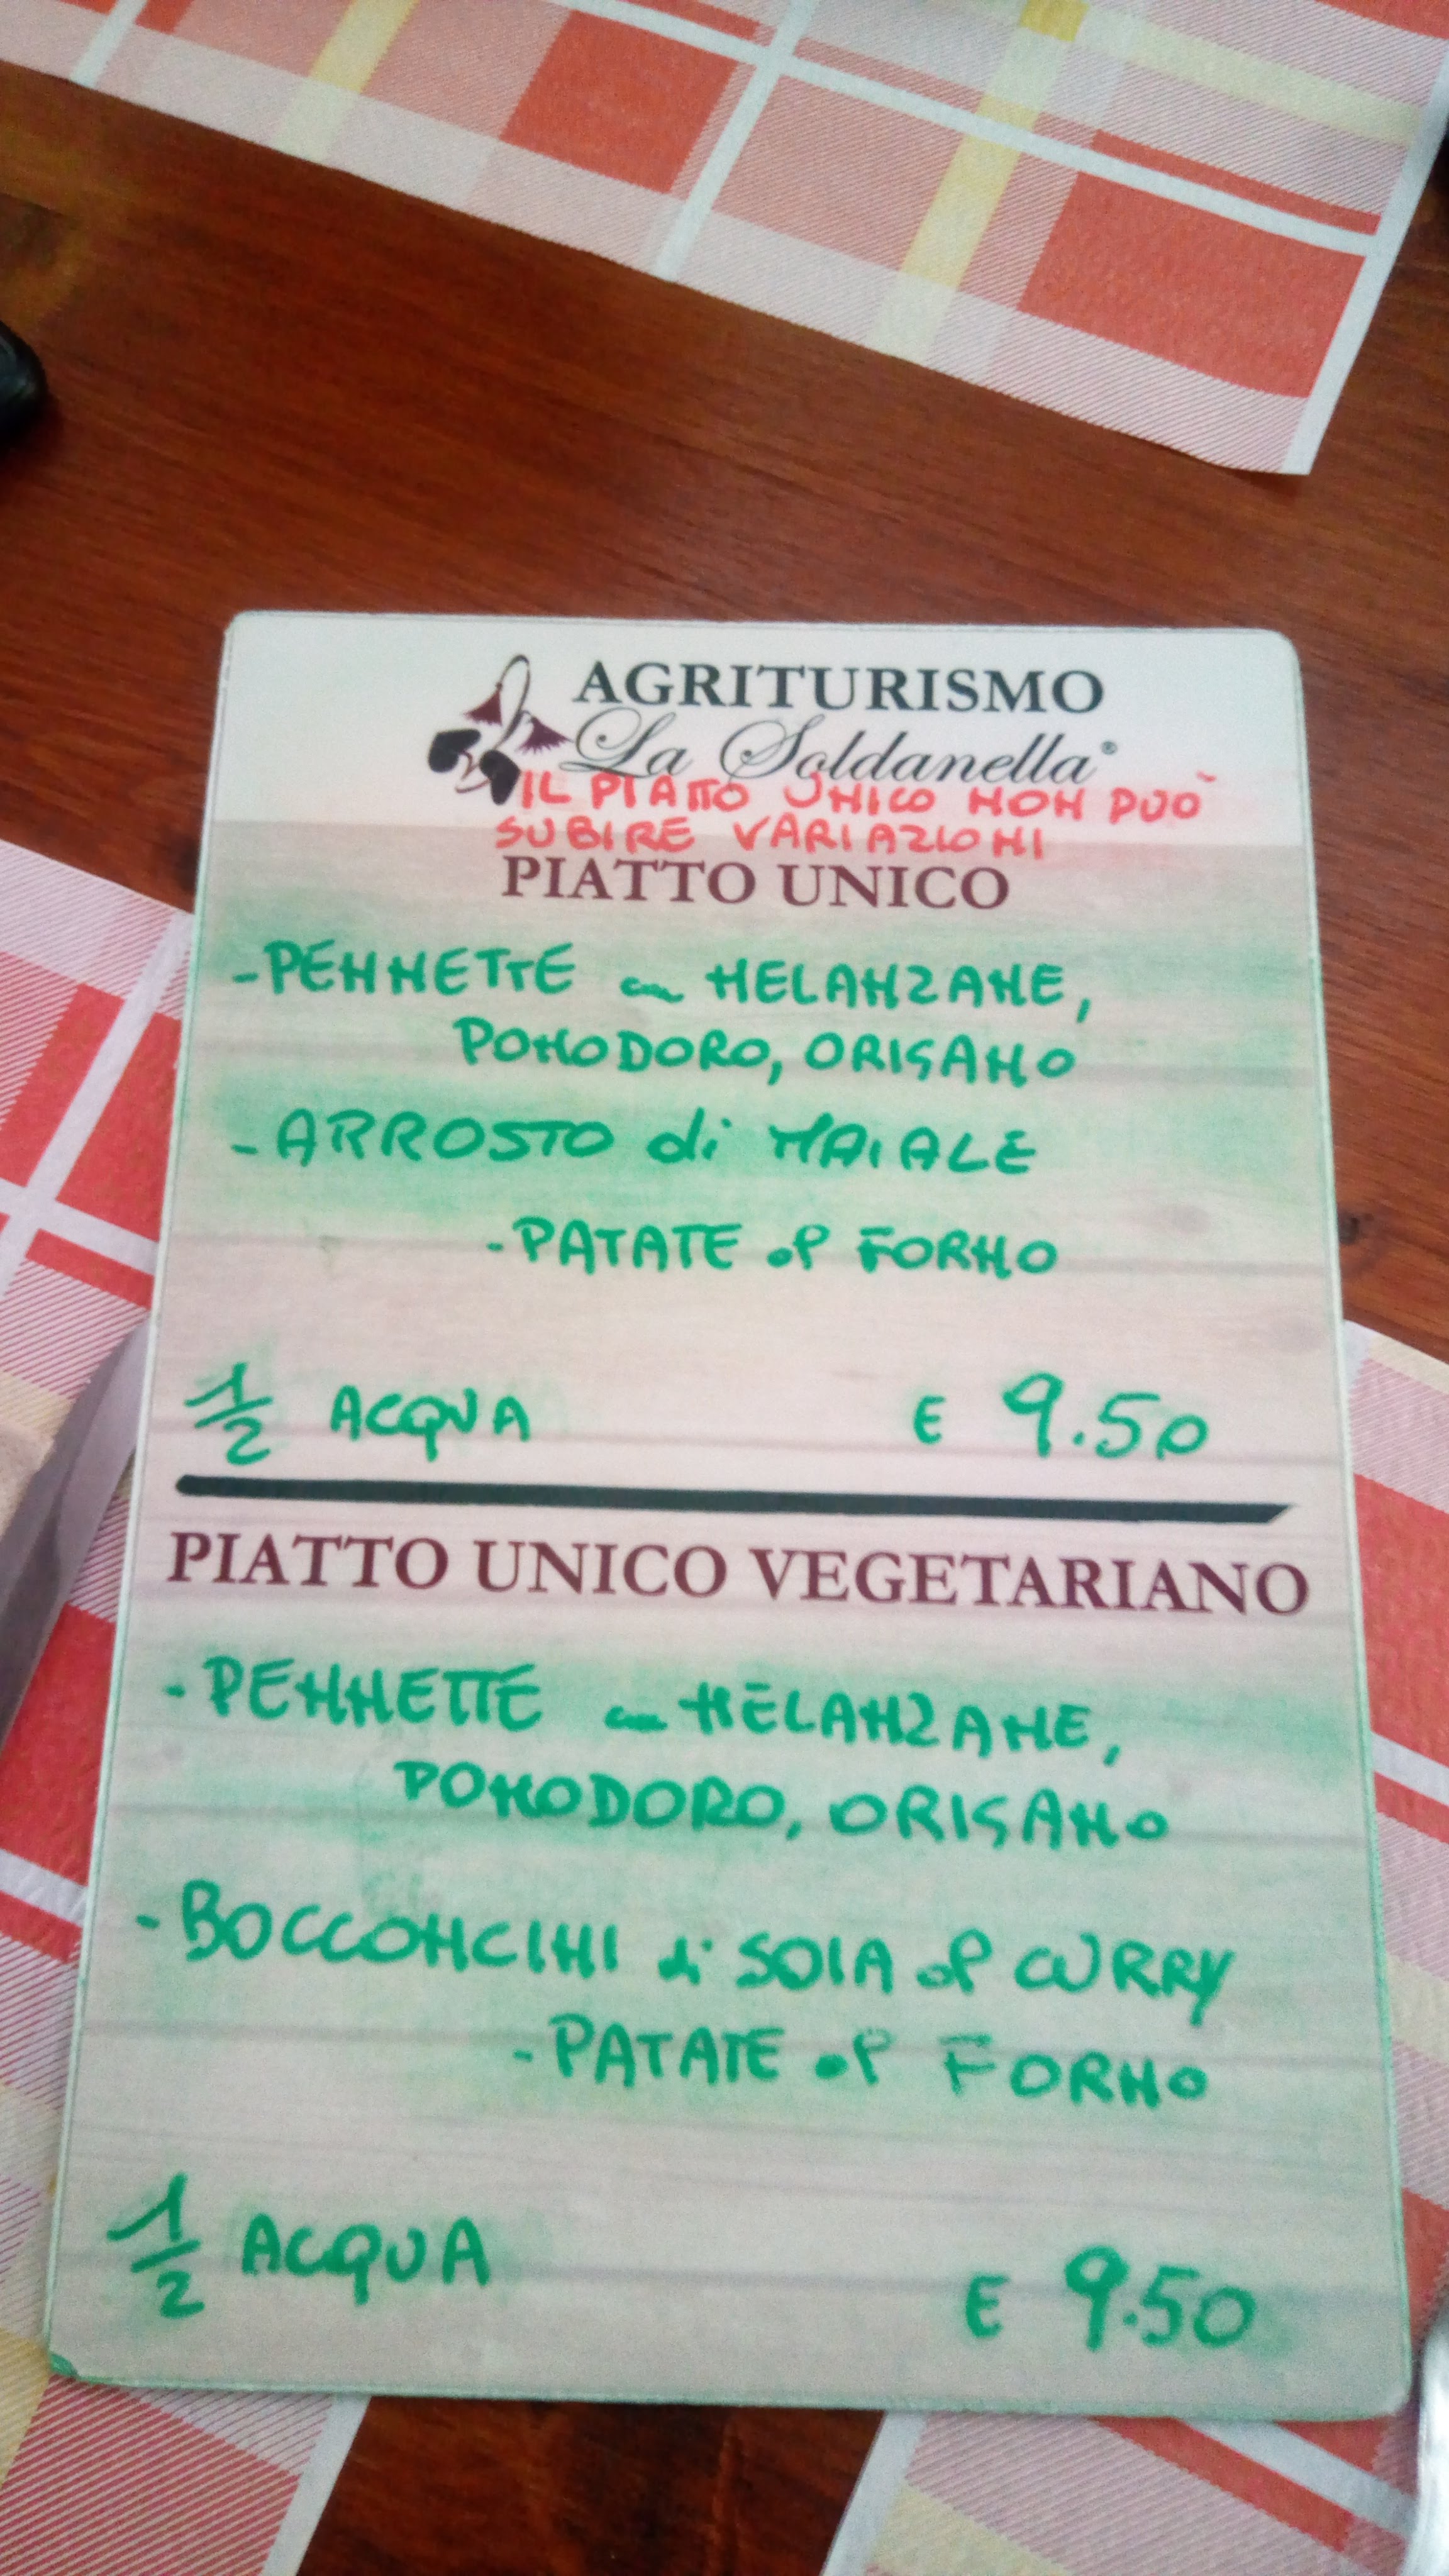 AGRITURISMO
La Soldanella®
IL PIATTO UNICO NON PUÒ
SUBIRE VARIAZIONI
PIATTO UNICO
- PENNETTE con MELANZANE,
POMODORO, ORIGANO
- ARROSTO di MAIALE
- PATATE al FORNO
1/2 ACQUA € 9.50
PIATTO UNICO VEGETARIANO
- PENNETTE con MELANZANE,
POMODORO, ORIGANO
- BOCCONCINI di SOIA al CURRY
- PATATE al FORNO
1/2 ACQUA
€ 9.50